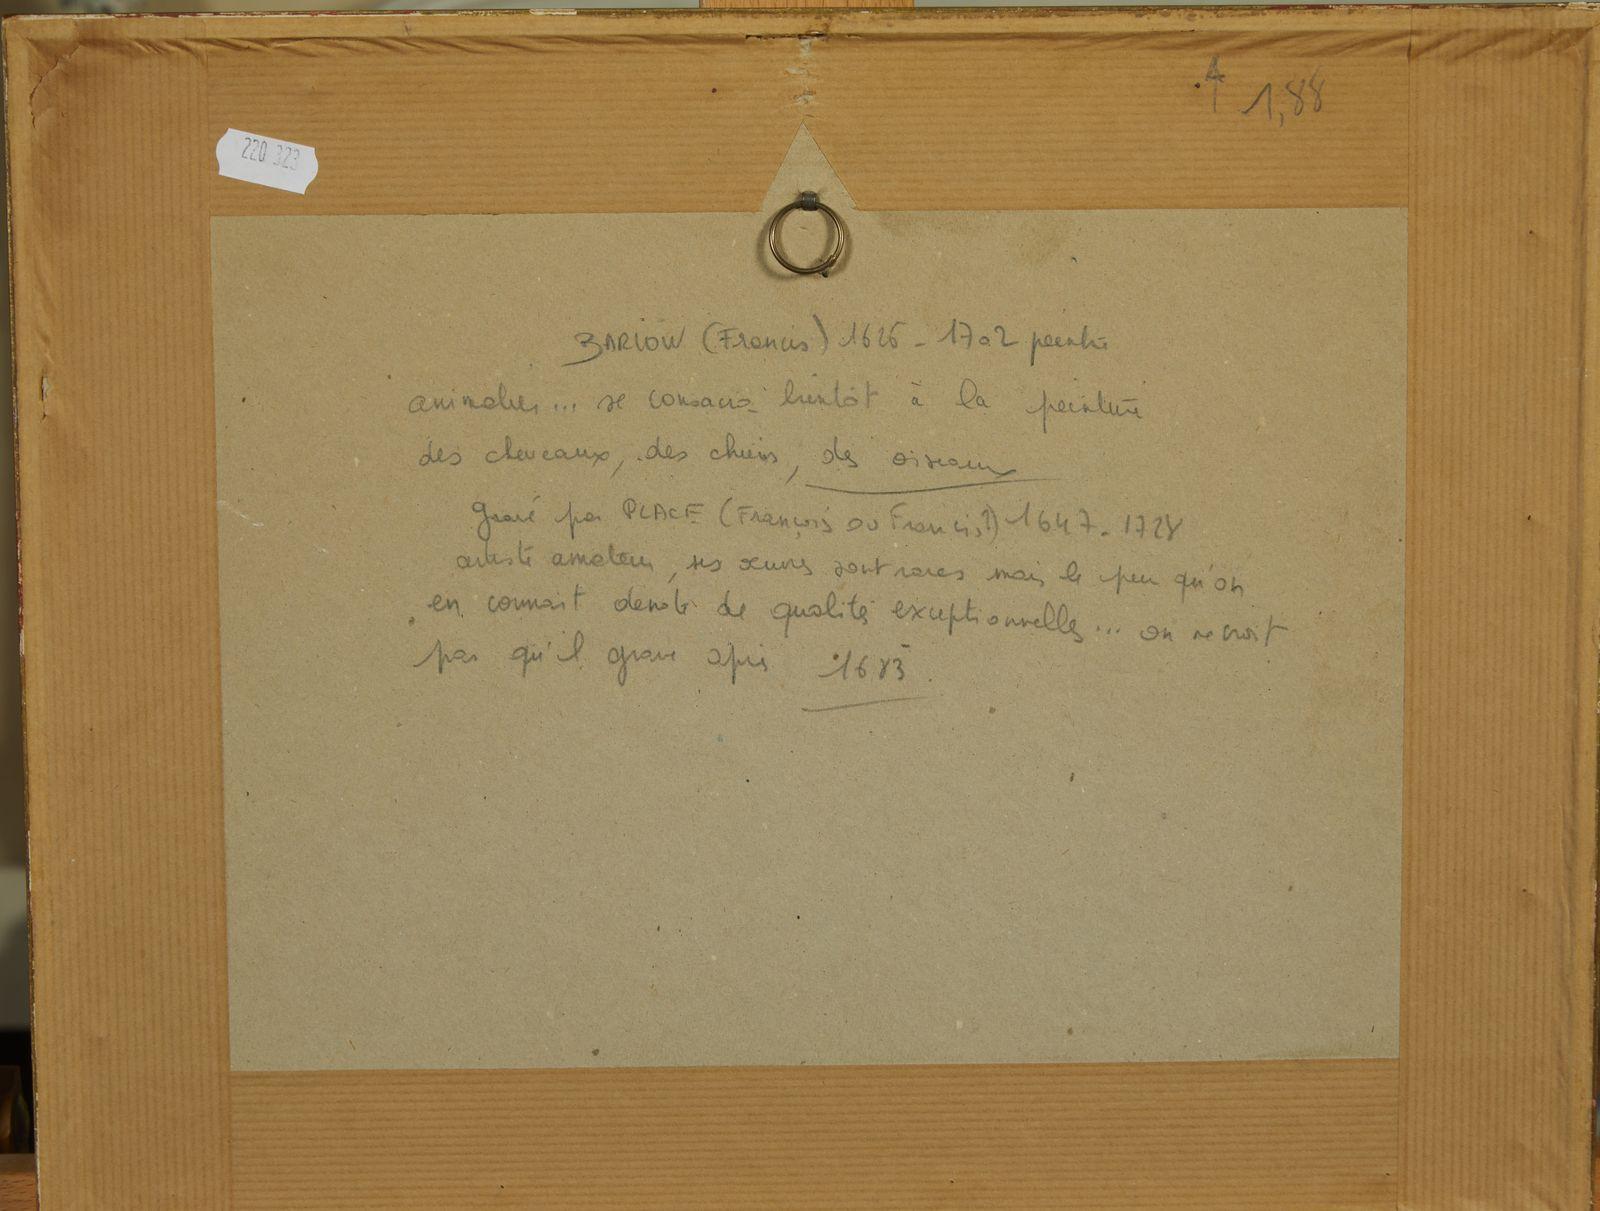 4 1,88
220 323
BARLOW (Francis) 1626 - 1702 peintre
animalier... se consacra bientôt à la peinture
des chevaux, des chiens, des oiseaux
gravé par PLACE (François ou Francis?) 1647 - 1728
artiste amateur, ses œuvres sont rares mais le peu qu'on
en connait denote de qualités exceptionnelles... on ne croit
pas qu'il grave après 1683.